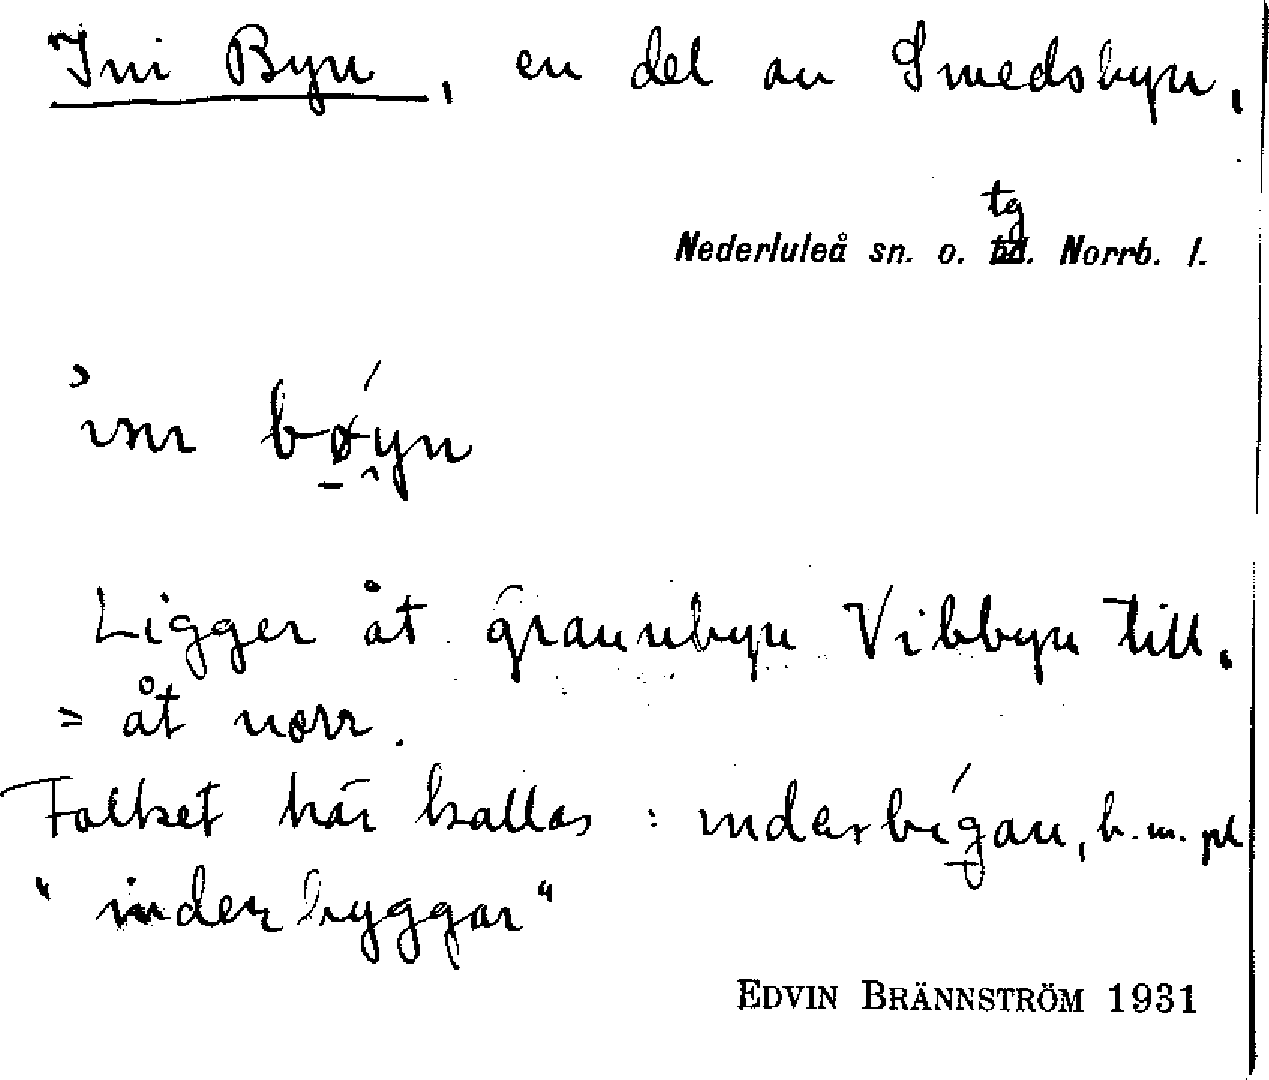 Ini Byn, en del av Smedsbyn,
Nederluleå sn. o. tg. Norrb. l.
ini bøyn
Ligger åt grannbyn Vibbyn till.
= åt norr.
Folket här kallas: inderbígan, b.m.pl
"inderbyggar"
EDVIN BRÄNNSTRÖM 1931